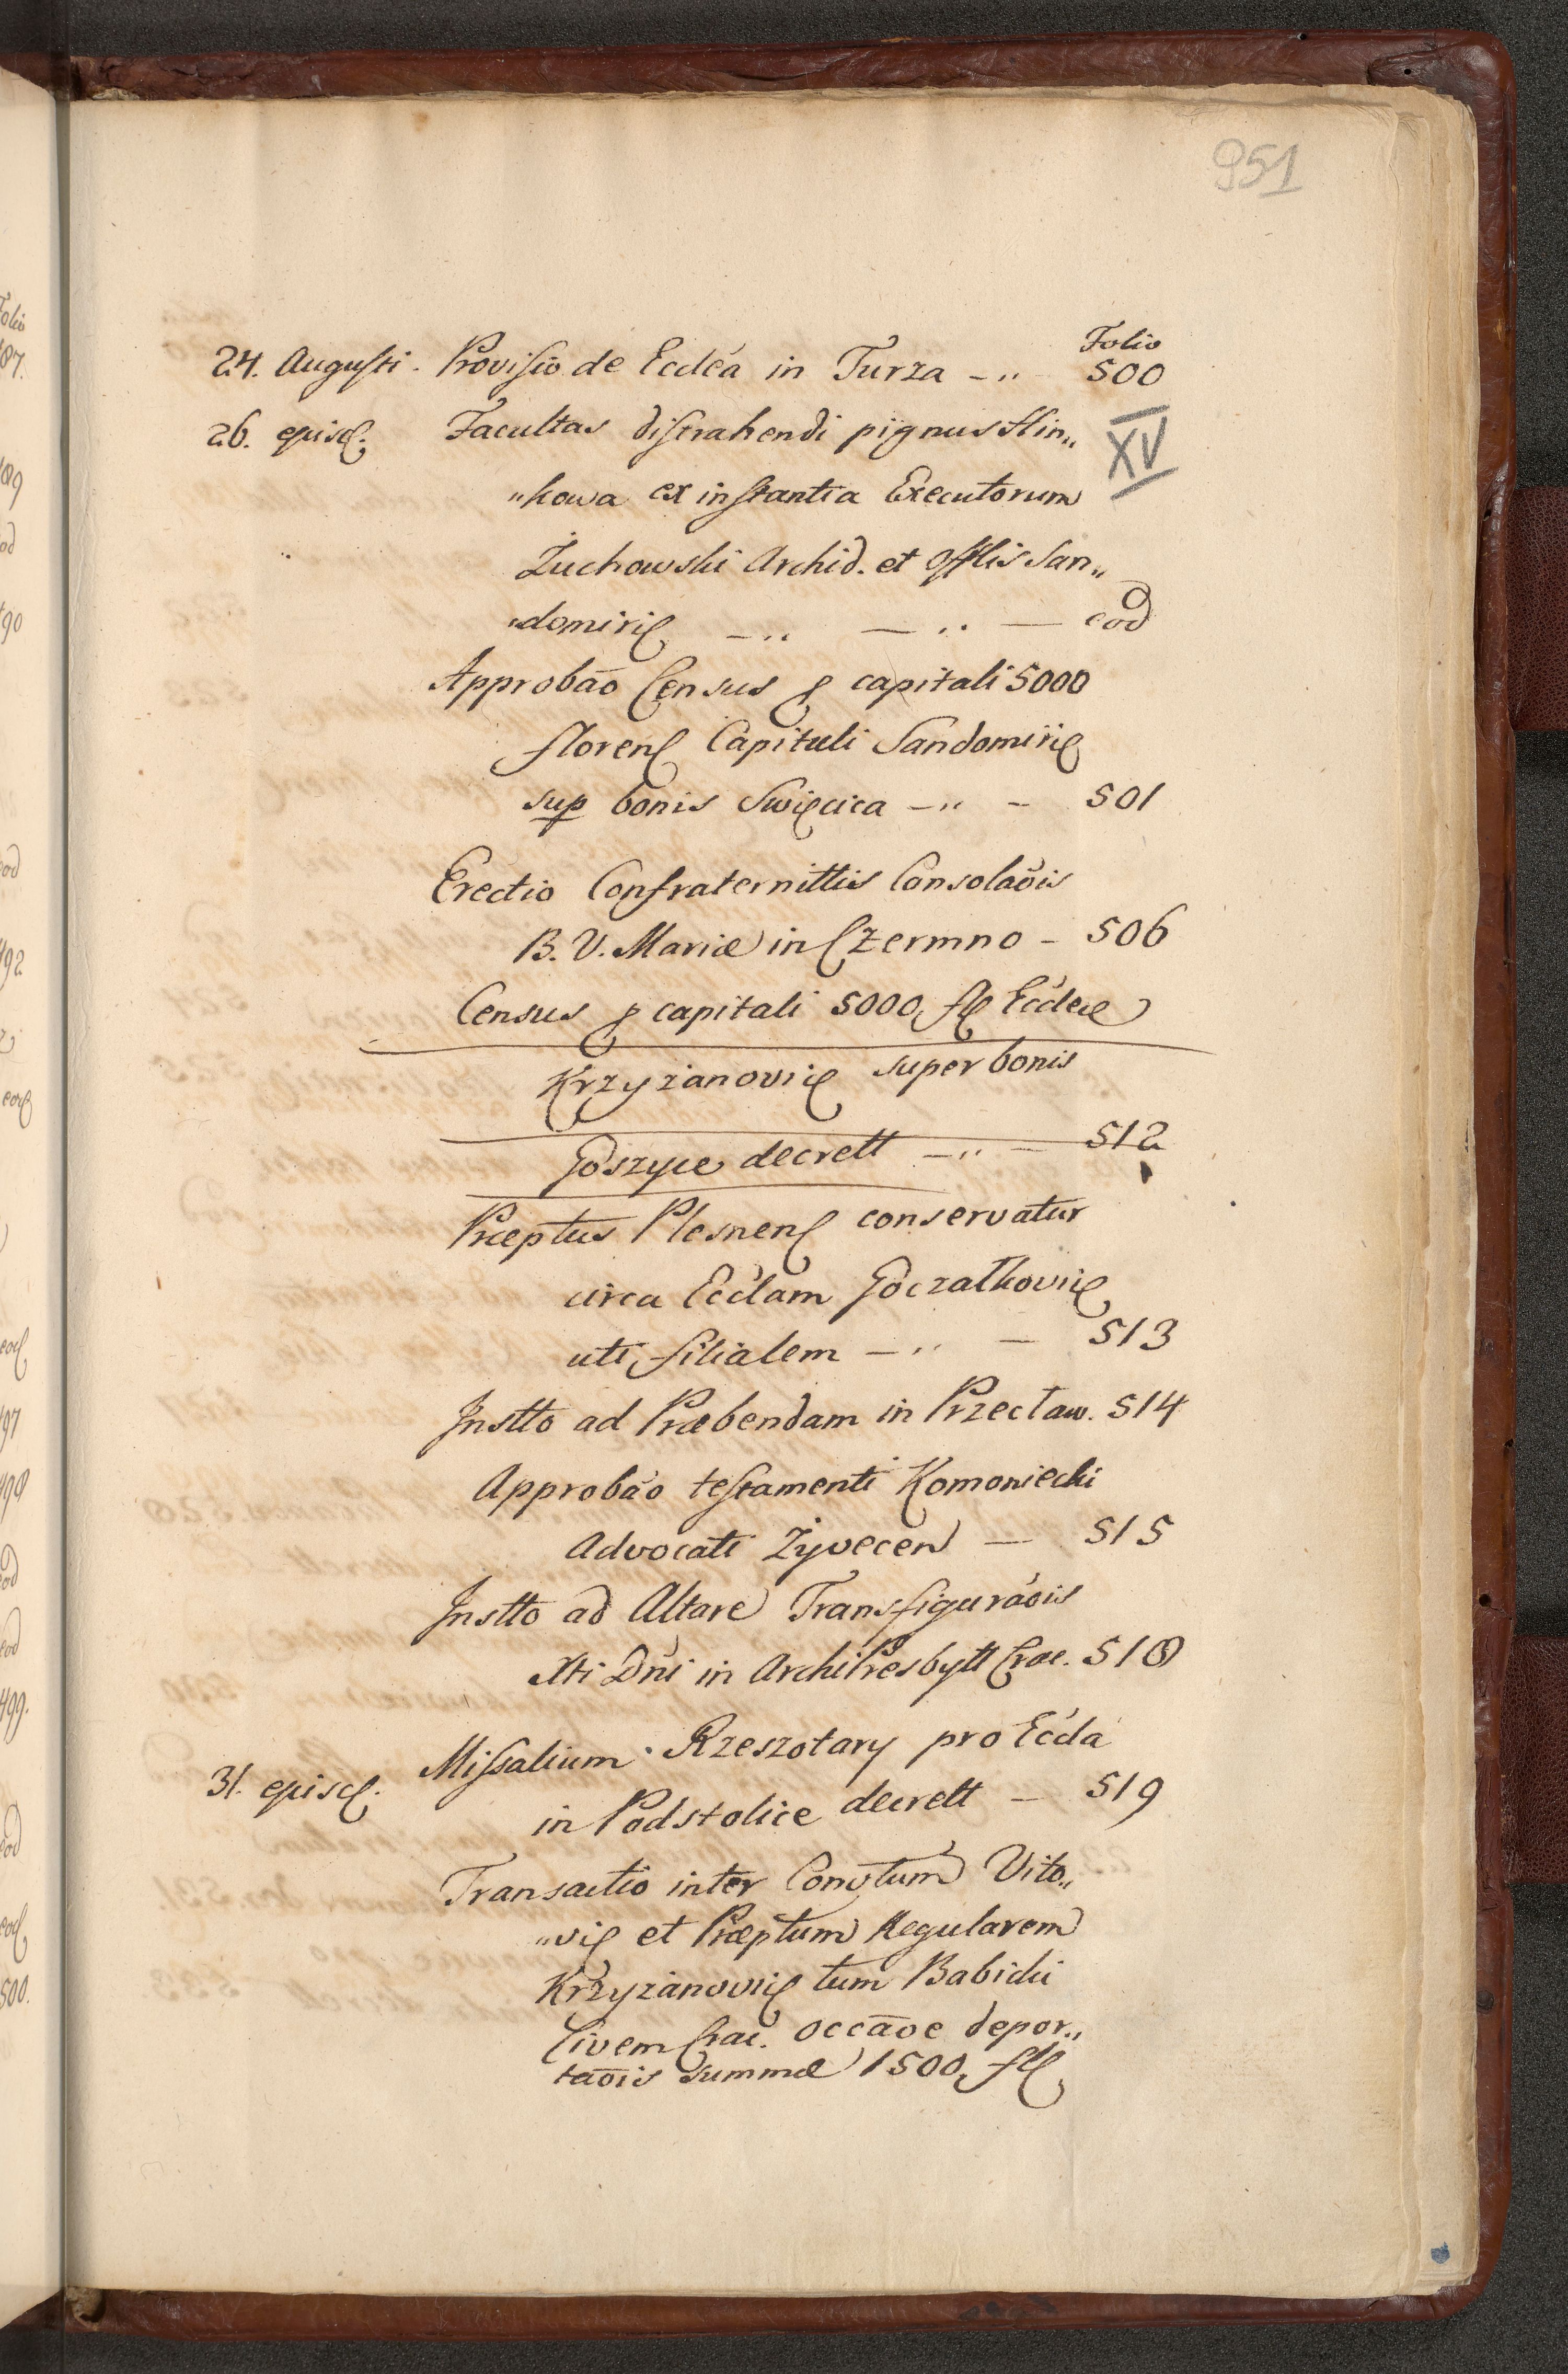 951
Folio
24. Augusti. Provisio de Eccl̃a in Turza -„ 500
26. episc. Facultas distrahendi pignus Slin„
XV
„kowa ex instantia Executorum
Żuchowski Archid. et Offlis San„
„domirien -„ - „ - eod
Approbão Census p capitali 5000
floren Capituli Sandomirien
sup bonis Swięcica -„ - 501
Erectio Confraternittis Consolaõis
B. V. Mariæ in Czermno - 506
Census p capitali 5000 fl Eccleæ
Krzyżanovien super bonis
Goszyce decrett -„ - 512
Præptus Plesnen conservatur
circa Ecclam Goczałkovien
uti filialem -„ - 513
Instto ad Præbendam in Przecław. 514
Approbão testamenti Komoniecki
Advocati Żyvecen - 515
Instto ad Altare Transfiguraõis
Xti Dńi in ArchiPresbytt Crac. 518
31. episc. Missalium Rzeszotary pro Eccla
in Podstolice decrett - 519
Transactio inter Convtum Vito„
„vien et Præptum Regularem
Krzyżanovien tum Babicki
Civem Crac. occãoe depor„
taõis summæ 1500 fl
Folio
87.
189
od
490
eod
492
eod
497
498
eod
eod
499.
eod
eod
500.